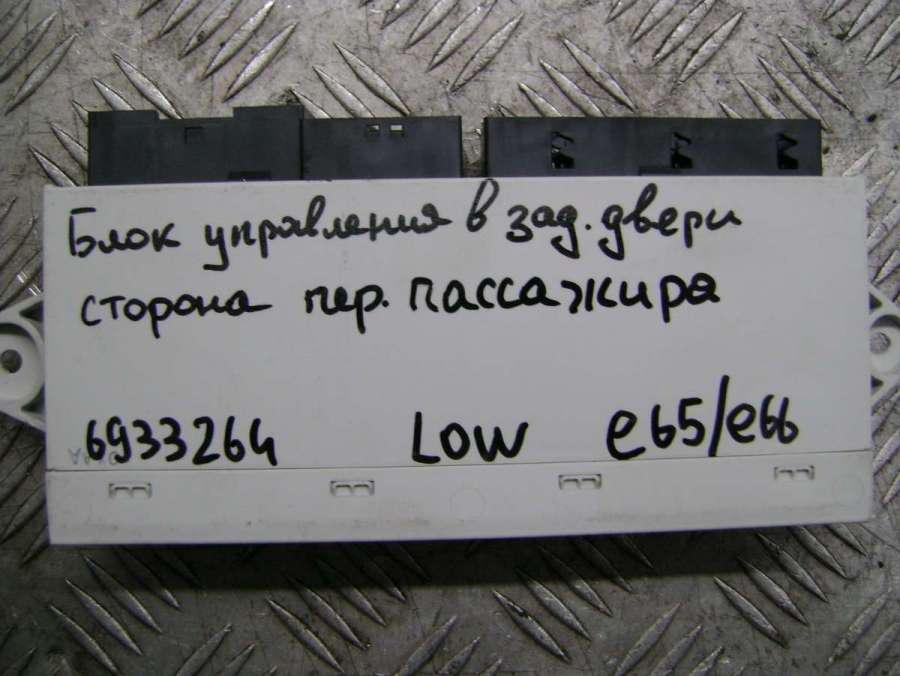 Блок управления в зад. двери
сторона пер. пассажира
6933264 LOW e65/e66